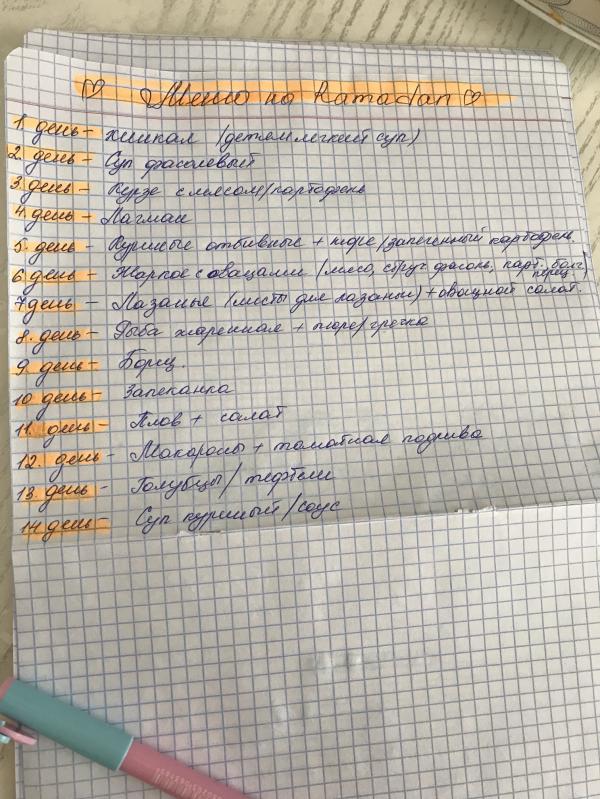 ♡ Меню на Ramadan ♡
1. день - хинкал (детям легкий суп)
2. день - Суп фасолевый
3. день - Курзе с мясом/картофель
4. день - Лагман
5. день - Куриные отбивные + пюре/запеченный картофель.
6. день - Жаркое с овощами (мясо, струч. фасоль, карт. болг. перец)
7 день - Лазанья (листы для лазаньи) + овощной салат.
8. день - Рыба жаренная + пюре/гречка
9. день - Борщ.
10 день - Запеканка
11. день - Плов + салат
12. день - Макароны + томатная подлива
13. день - Голубцы/тефтели
14 день - Суп куриный/соус